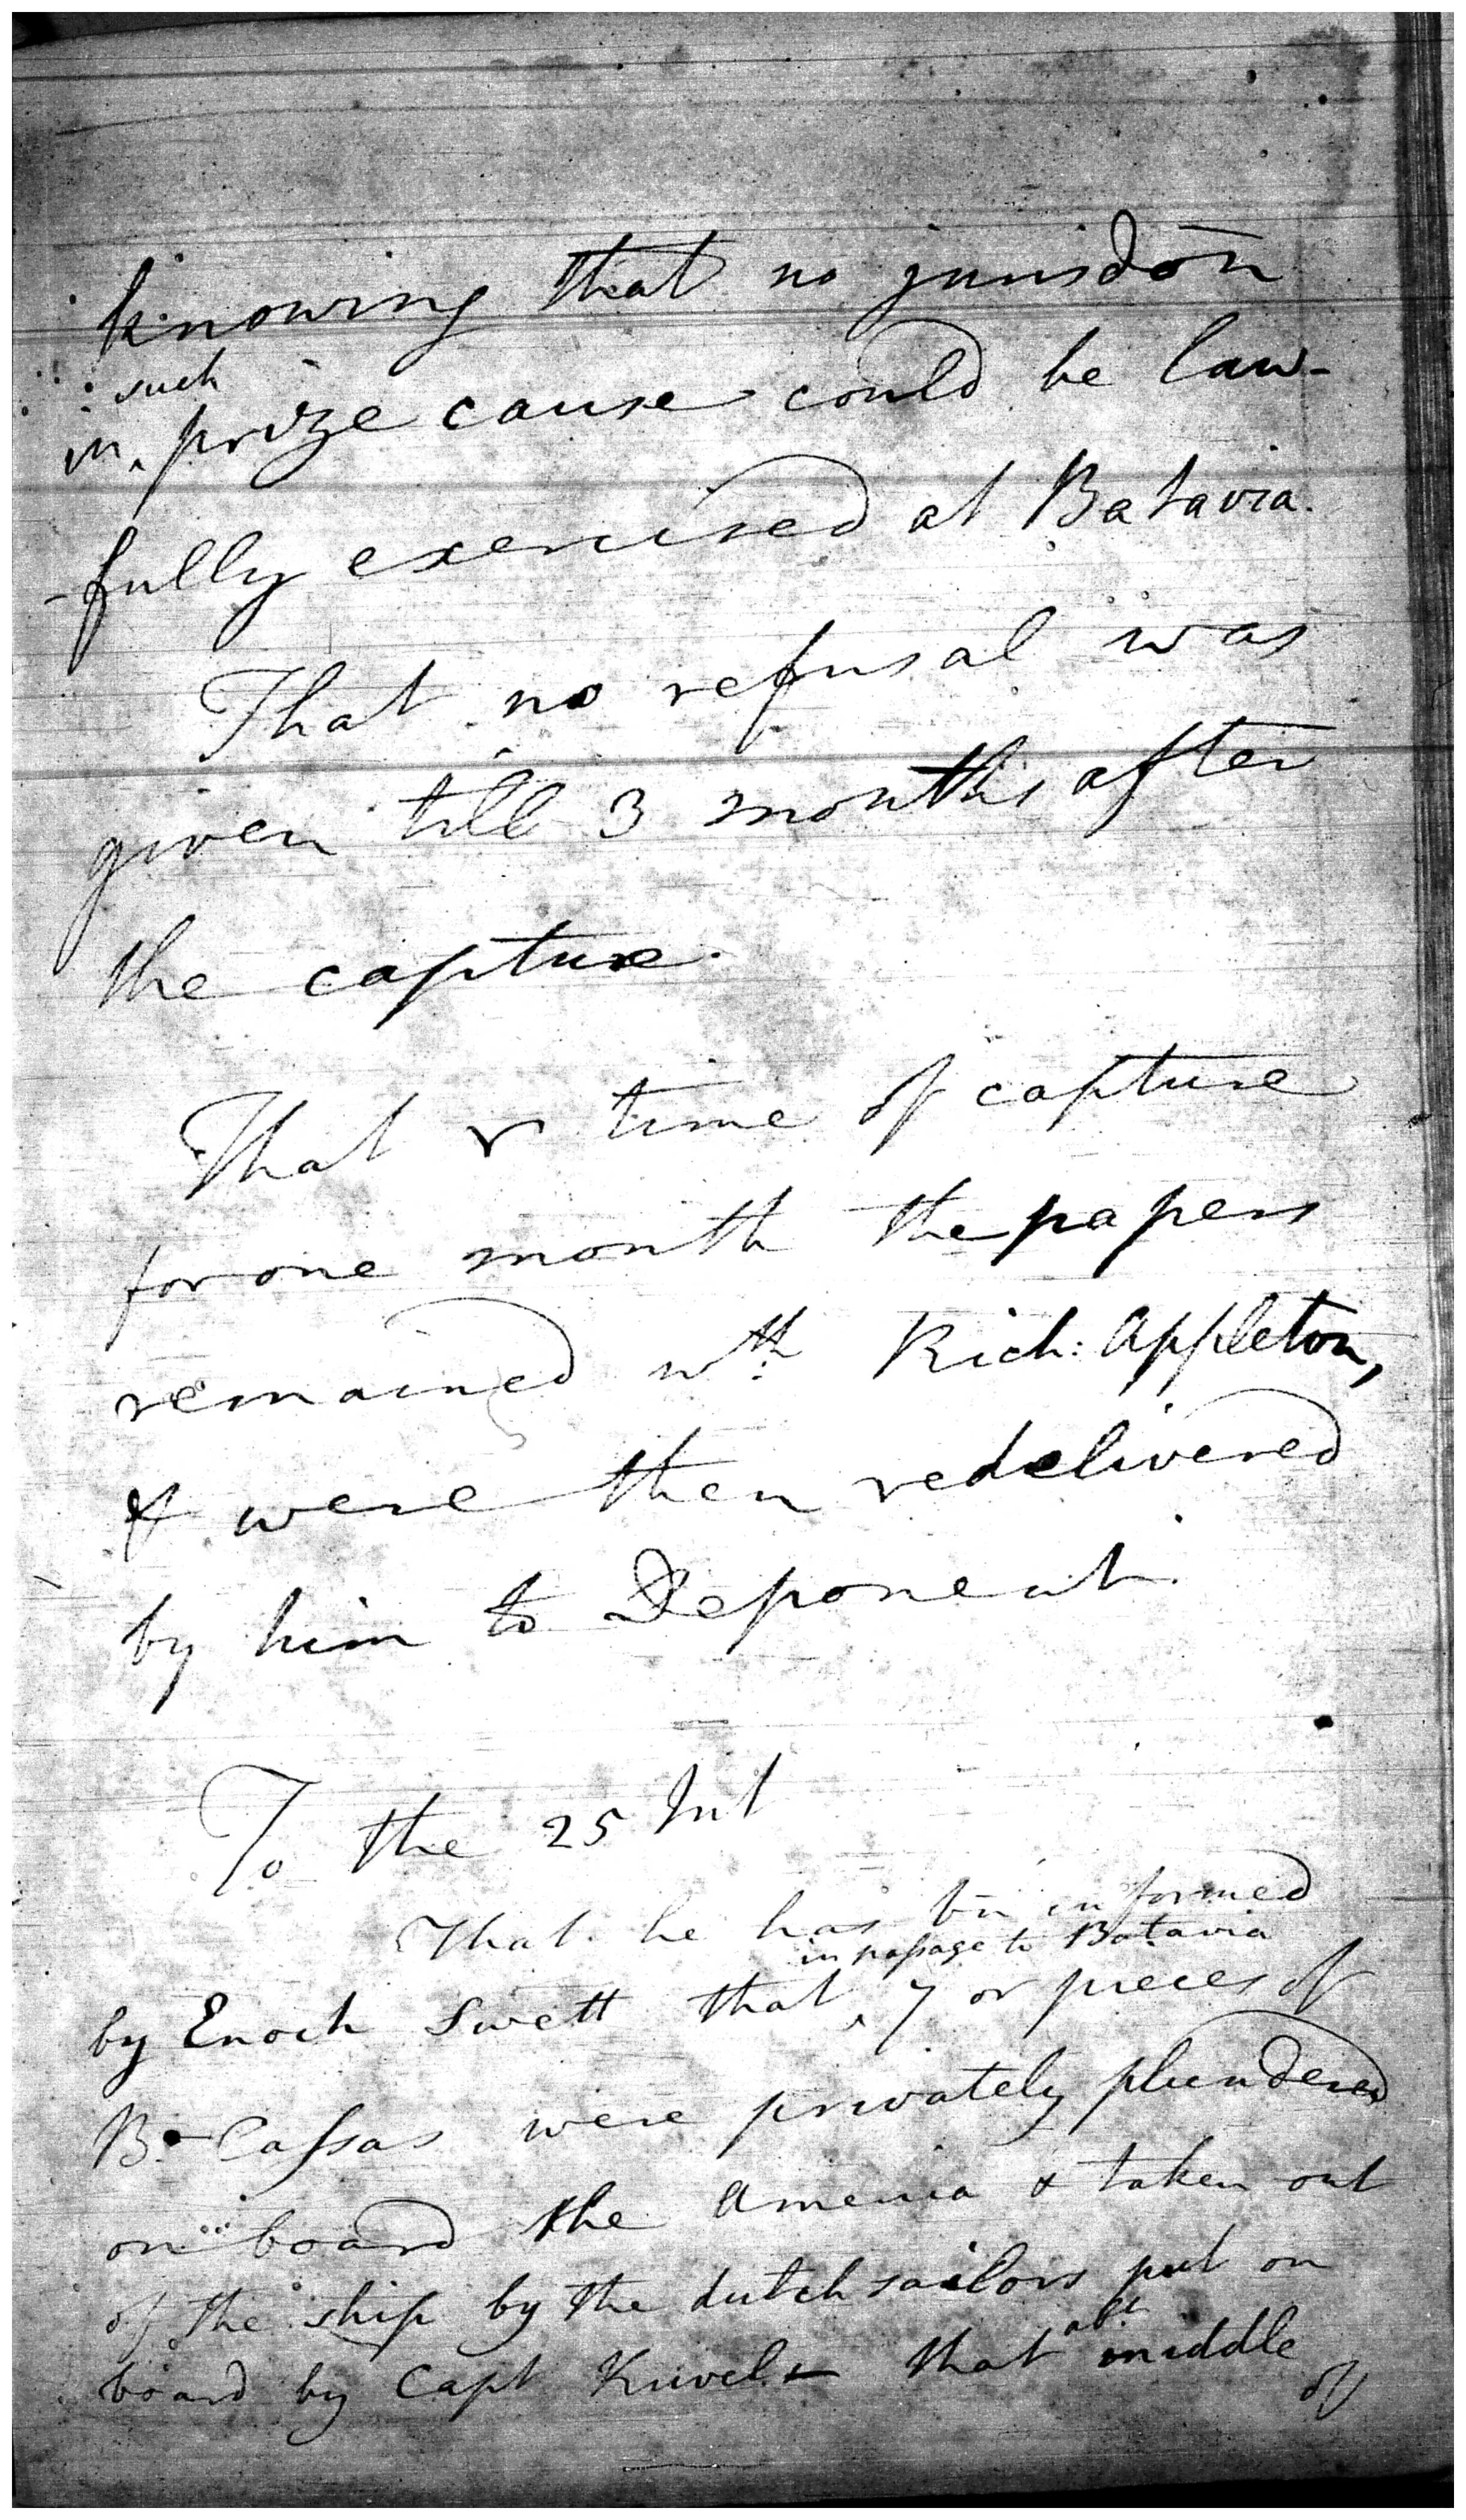 knowing that no jurisdōn
such
in ‸ prize cause could be law-
-fully exercised at Batavia.
That no refusal was
given till 3 months after
the capture.
That time of capture
for one month the papers
remained wth Rich: Appleton,
& were then redelivered
by him to Deponent.
To the 25 Int
That he has bn informed
in passage to Batavia
by Enoch Swett that ‸ 7 or pieces of
B. Cassas were privately plundered
on board the America & taken out
of the ship by the dutch sailors put on
abt
board by Capt that middle
of